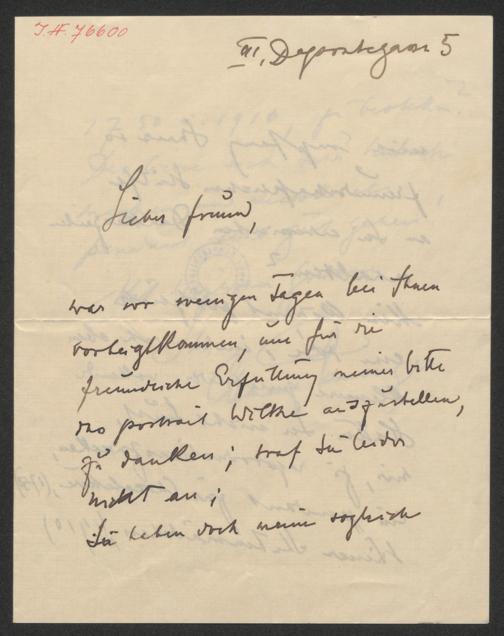 J.N. 76600
III, Deporategasse 5
Lieber Freund,
war vor wenigen Tagen bei Ihnen
vorbeigekommen, um für die
freundliche Erfüllung meiner Bitte
das Portrait Wilthe auszustellen,
zu danken; traf Sie leider
nicht an;
Sie haben doch meine sogleich